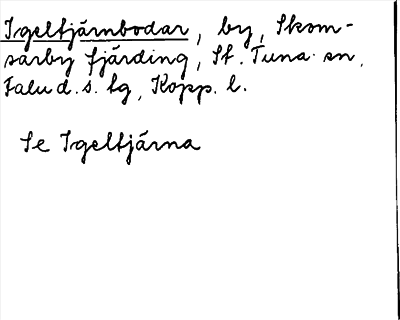 Igeltjärnbodar, by, Skom-
sarby fjärding, St. Tuna sn,
Falu d. s. tg, Kopp. l.
Se Igeltjärna